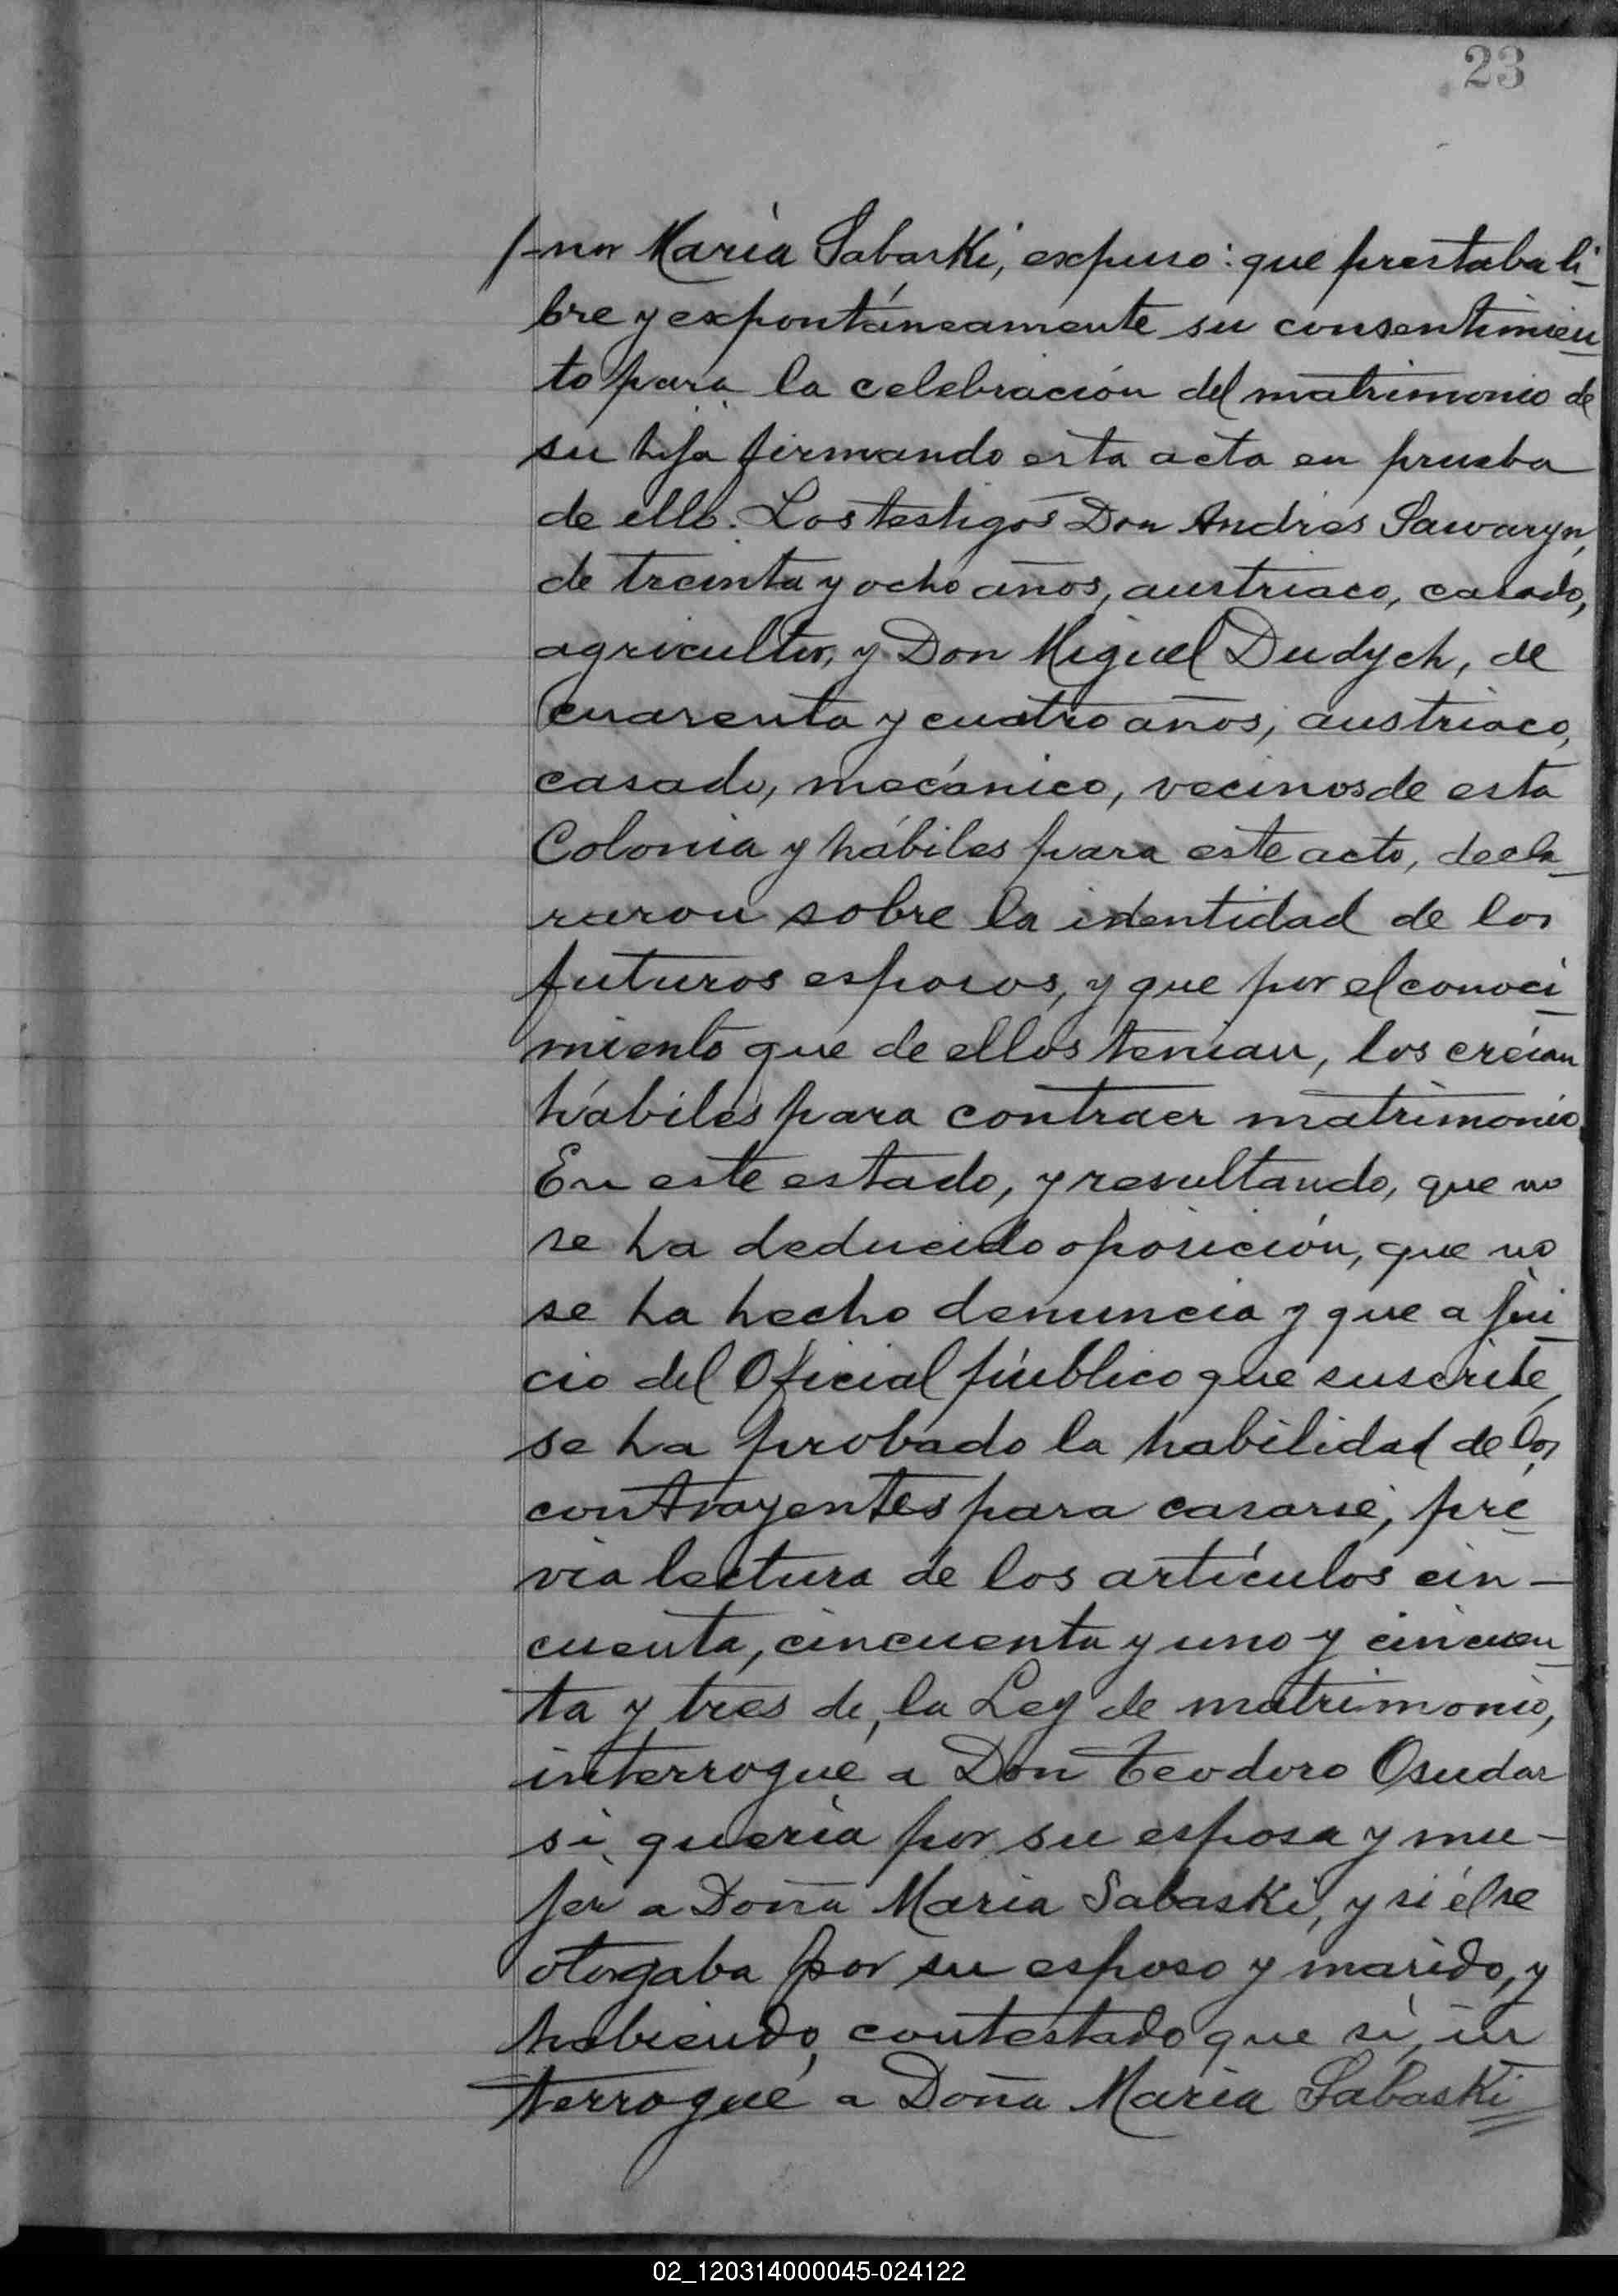 23
/-nor María Sabaski, expuso: que prestaba li-
bre y expontáneamente su consentimien-
to para la celebración del matrimonio de
su hija firmando esta acta en prueba
de ello. Los testigos Don Andrés Sawaryn,
de treinta y ocho años, austriaco, casado,
agricultor, y Don Miguel Dudych, de
cuarenta y cuatro años, austriaco,
casado, mecánico, vecinos de esta
Colonia y hábiles para este acto, decla-
raron sobre la identidad de los
futuros esposos, y que por el conoci-
miento que de ellos tenían, los creían
hábiles para contraer matrimonio.
En este estado, y resultando, que no
se ha deducido oposición, que no
se ha hecho denuncia y que a jui-
cio del Oficial público que suscribe,
se ha probado la habilidad de los
contrayentes para casarse, pre-
via lectura de los artículos cin-
cuenta, cincuenta y uno y cincuen-
ta y tres de la Ley de matrimonio,
interrogué a Don Teodoro Osudar
si quería por su esposa y mu-
jer a Doña María Sabaski, y si él se
otorgaba por su esposo y marido, y
habiendo contestado que sí, in
terrogué a Doña María Sabaski
02_120314000045-024122